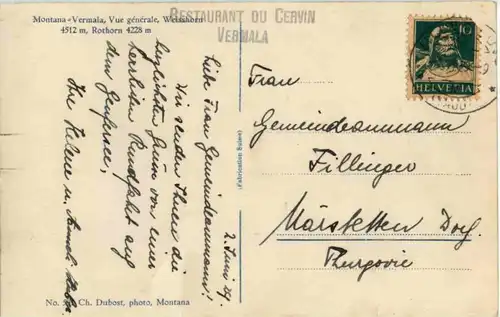 Montana-Vermala, Vue générale, Weisshorn
4512 m, Rothorn 4228 m
RESTAURANT DU CERVIN
VERMALA
2. Juni 29.
Liebe Frau Gemeindeammann!
Wir senden Ihnen die
herzlichsten Grüsse von einer
herrlichen Rundfahrt auf
dem Genfersee.
Ihre Helene u.
No. Ch. Dubost, photo, Montana
(Fabrication Suisse)
10
HELVETIA
Frau
Gemeindeammann
Fillinger
Märstetten Dorf
Thurgovie